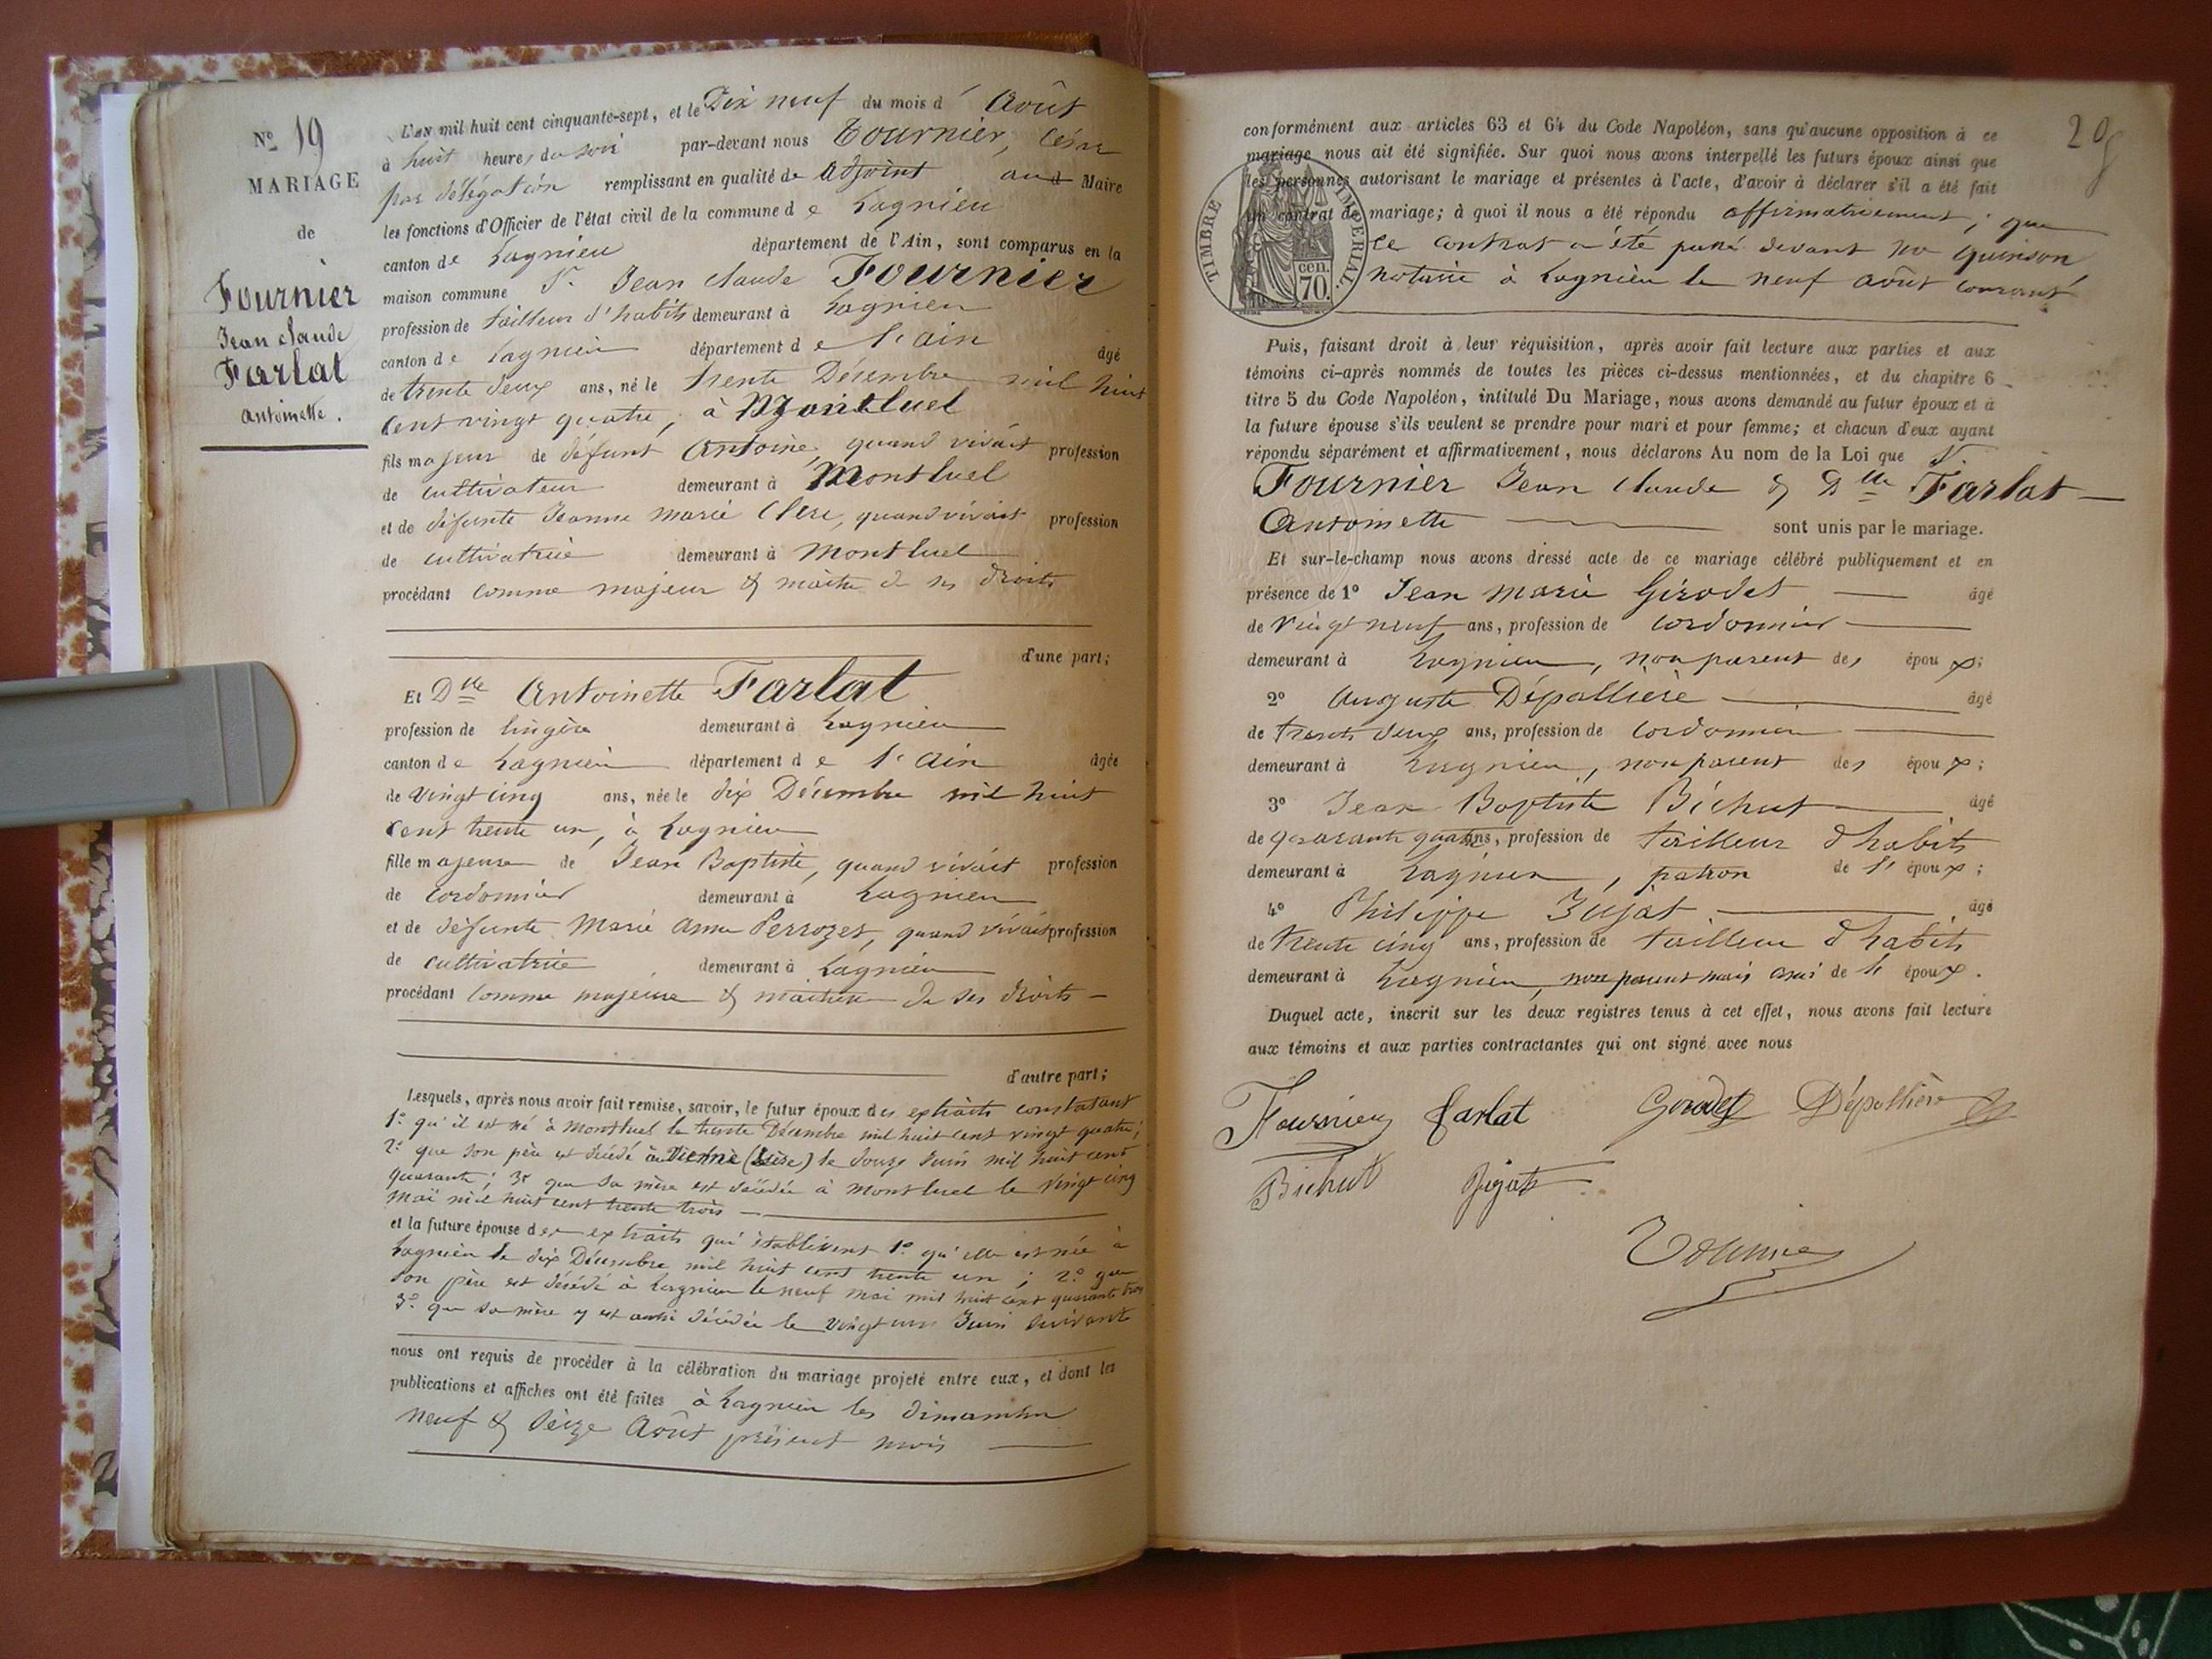 N° 19
MARIAGE
de
Fournier
Jean Claude
Farlat
Antoinette.
L'an mil huit cent cinquante-sept, et le Dix neuf du mois d' Août
à huit heures du soir par-devant nous Tournier, César
par délégation remplissant en qualité de Adjoint au Maire
les fonctions d'Officier de l'état civil de la commune de Lagnieu
canton de Lagnieu département de l'Ain, sont comparus en la
maison commune Sr. Jean Claude Fournier
profession de tailleur d'habits demeurant à Lagnieu
canton de Lagnieu département de l'ain âgé
de trente deux ans, né le trente Décembre mil huit
cent vingt quatre, à Montluel
fils majeur de défunt Antoine, quand vivait profession
de cultivateur demeurant à Montluel
et de défunte Jeanne Marie Clerc, quand vivait profession
de cultivatrice demeurant à Montluel
procédant comme majeur & maître de ses droits
d'une part;
Et Dlle Antoinette Farlat
profession de lingère demeurant à Lagnieu
canton de Lagnieu département de l'Ain âgée
de vingt cinq ans, née le dix Décembre mil huit
cent trente un, à Lagnieu
fille majeure de Jean Baptiste, quand vivait profession
de cordonnier demeurant à Lagnieu
et de défunte Marie Anne Perrozet, quand vivait profession
de cultivatrice demeurant à Lagnieu
procédant comme majeure & maîtresse de ses droits
d'autre part;
Lesquels, après nous avoir fait remise, savoir, le futur époux des extraits constatant
1.° qu'il est né à Montluel le trente Décembre mil huit cent vingt quatre;
2.° que son père est décédé à Vienne (Isère) le douze Juin mil huit cent
quarante; 3° que sa mère est décédée à Montluel le vingt cinq
mai mil huit cent trente trois
et la future épouse des extraits qui établissent 1.° qu'elle est née à
Lagnieu le dix Décembre mil huit cent trente un; 2.° que
son père est décédé à Lagnieu le neuf mai mil huit cent quarante trois
3.° que sa mère y est aussi décédée le vingt un Juin suivant
nous ont requis de procéder à la célébration du mariage projeté entre eux, et dont les
publications et affiches ont été faites à Lagnieu les dimanches
neuf & seize Août présent mois
29
conformément aux articles 63 et 64 du Code Napoléon, sans qu'aucune opposition à ce
mariage nous ait été signifiée. Sur quoi nous avons interpellé les futurs époux ainsi que
les personnes autorisant le mariage et présentes à l'acte, d'avoir à déclarer s'il a été fait
un contrat de mariage; à quoi il nous a été répondu affirmativement; que
ce contrat a été passé devant Me Quinson
notaire à Lagnieu le neuf août courant
TIMBRE IMPERIAL.
cen.
70.
Puis, faisant droit à leur réquisition, après avoir fait lecture aux parties et aux
témoins ci-après nommés de toutes les pièces ci-dessus mentionnées, et du chapitre 6
titre 5 du Code Napoléon, intitulé Du Mariage, nous avons demandé au futur époux et à
la future épouse s'ils veulent se prendre pour mari et pour femme; et chacun d'eux ayant
répondu séparément et affirmativement, nous déclarons Au nom de la Loi que Sr.
Fournier Jean Claude & Dlle Farlat
Antoinette sont unis par le mariage.
Et sur-le-champ nous avons dressé acte de ce mariage célébré publiquement et en
présence de 1° Jean Marie Girodet âgé
de vingt neuf ans, profession de cordonnier
demeurant à Lagnieu, non parent des époux;
2° Auguste Dépollière âgé
de trente deux ans, profession de cordonnier
demeurant à Lagnieu, non parent des époux;
3° Jean Baptiste Bichut âgé
de quarante quatre ans, profession de tailleur d'habits
demeurant à Lagnieu, patron de l'époux;
4° Philippe Bijat âgé
de trente cinq ans, profession de tailleur d'habits
demeurant à Lagnieu, non parent mais ami de l'époux.
Duquel acte, inscrit sur les deux registres tenus à cet effet, nous avons fait lecture
aux témoins et aux parties contractantes qui ont signé avec nous
Fournier farlat Girodet Dépollière
Bichut Bijat
Tournier